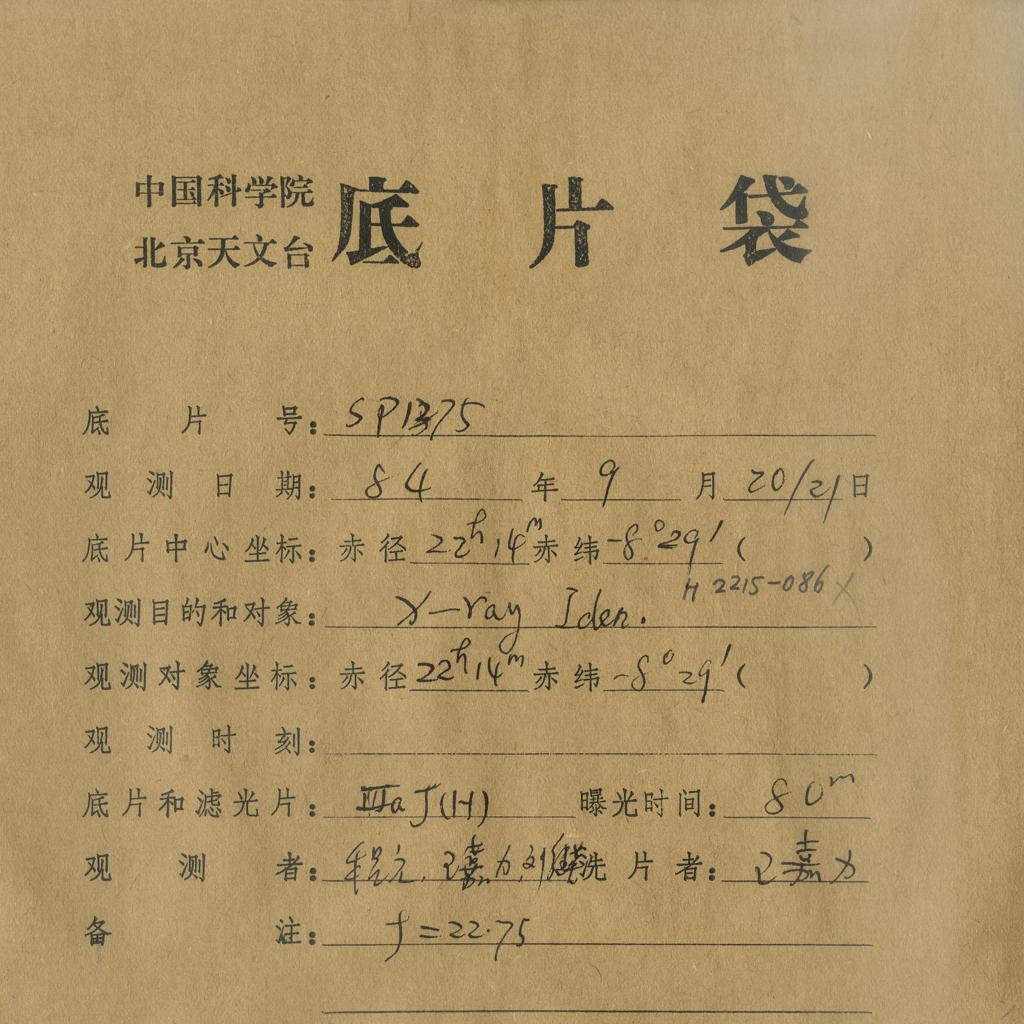 中国科学院
北京天文台 底片袋
底片号: SP1375
观测日期: 84年9月20/21日
底片中心坐标: 赤径22h14m赤纬-8°29′( )
H 2215-086 X
观测目的和对象: X-ray Iden.
观测对象坐标: 赤径22h14m赤纬-8°29′( )
观测时刻:
底片和滤光片: IIIaJ(H) 曝光时间: 80m
观测者: 王嘉力 洗片者: 王嘉力
备注: f=22.75